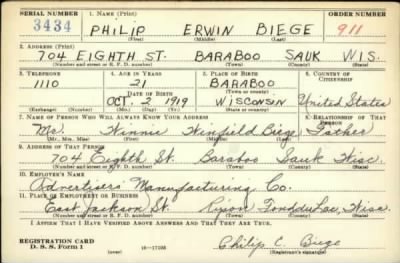 SERIAL NUMBER 1. NAME (Print) ORDER NUMBER
3434 PHILIP ERWIN BIEGE 911
(First) (Middle) (Last)
2. ADDRESS (Print)
704 EIGHTH ST. BARABOO SAUK WIS.
(Number and street or R. F. D. number) (Town) (County) (State)
3. TELEPHONE 4. AGE IN YEARS 5. PLACE OF BIRTH 6. COUNTRY OF CITIZENSHIP
1110 21 BARABOO
DATE OF BIRTH (Town or county)
OCT. 2 1919 WISCONSIN United States
(Exchange) (Number) (Mo.) (Day) (Yr.) (State or country)
7. NAME OF PERSON WHO WILL ALWAYS KNOW YOUR ADDRESS 8. RELATIONSHIP OF THAT PERSON
Mr. Winnie Winfield Biege Father
(Mr., Mrs., Miss) (First) (Middle) (Last)
9. ADDRESS OF THAT PERSON
704 Eighth St. Baraboo Sauk Wisc.
(Number and street or R. F. D. number) (Town) (County) (State)
10. EMPLOYER'S NAME
Advertisers Manufacturing Co.
11. PLACE OF EMPLOYMENT OR BUSINESS
East Jackson St. Ripon Fond du Lac, Wisc.
(Number and street or R. F. D. number) (Town) (County) (State)
I AFFIRM THAT I HAVE VERIFIED ABOVE ANSWERS AND THAT THEY ARE TRUE.
REGISTRATION CARD
D. S. S. Form 1 16—17105 Philip E. Biege
(Registrant's signature)